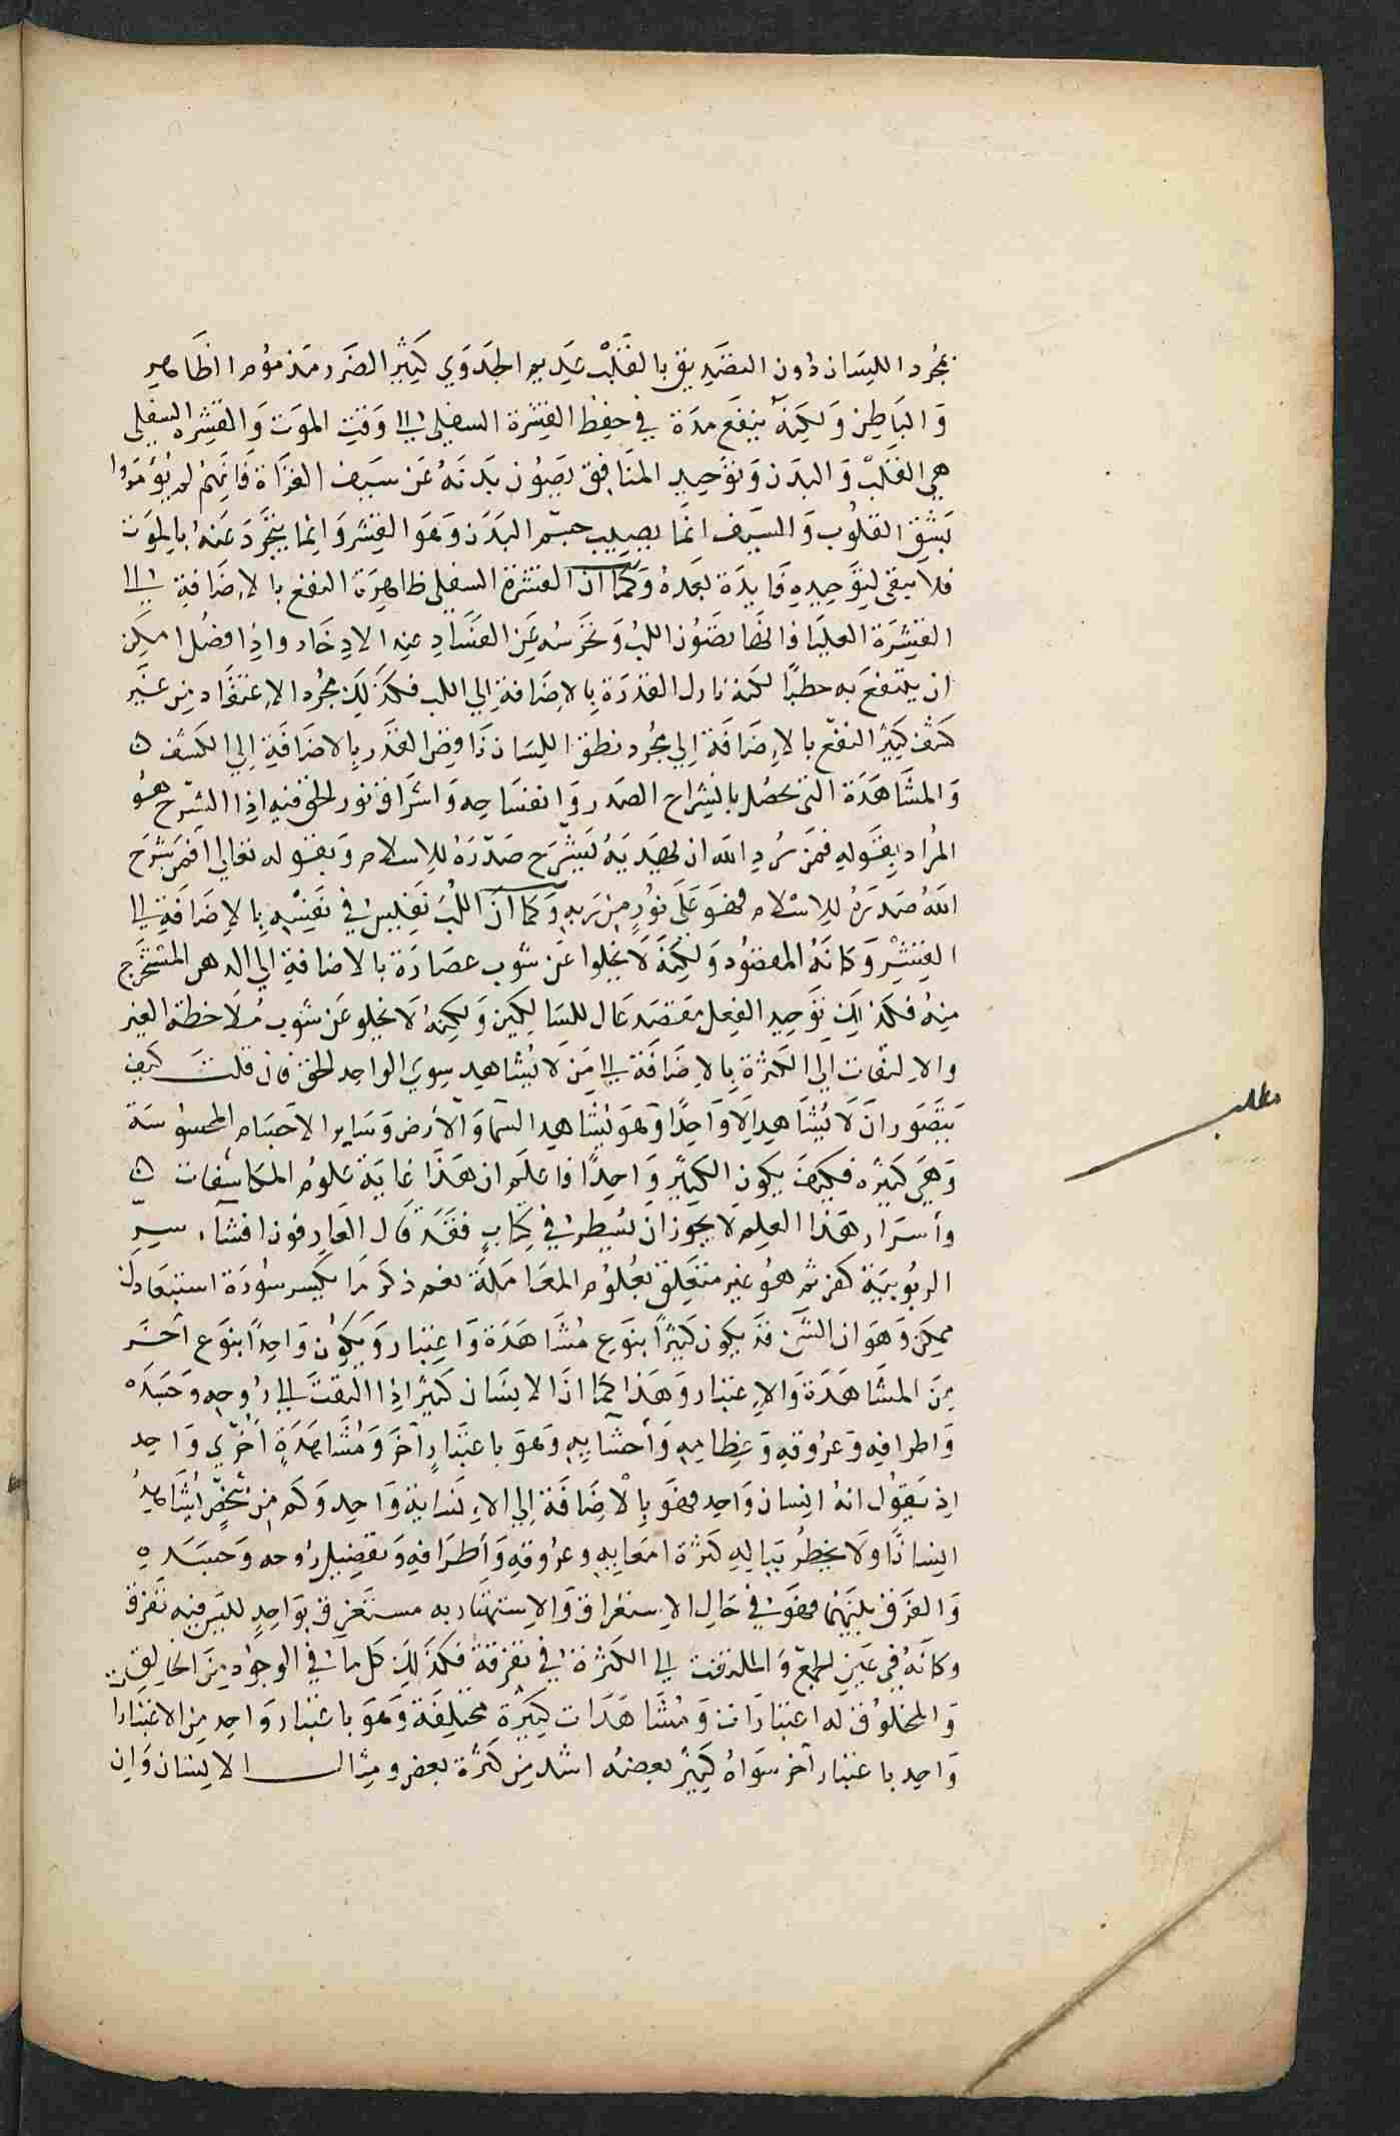 بمجرد اللسان دون التصديق بالقلب عديم الجدوي كثير الضرر مذموم الظاهر
والباطن ولكنه ينفع مدة في حفظ القشرة السفلى الى وقت الموت والقشره السفلى
هي القلب والبدن وتوحيد المنافق يصون بدنه عن سيف الغزاة فانهم لم يؤمروا
بشق القلوب والسيف انما يصيب جسم البدن وهو القشر وانما يتجرد عنه بالموت
فلا يبقى لتوحيده فايدة بعده وكما ان القشرة السفلى ظاهرة النفع بالاضافة الى
القشرة العليا فانها تصون اللب وتحرسه عن الفساد عند الادخار واذا فصل امكن
ان ينتفع به حطبًا لكنه نازل القدرة بالاضافة الي اللب فكذلك مجرد الاعتقاد من غير
كشف كثير النفع بالاضافة الي مجرد نطق اللسان ناقص القدر بالاضافة الي الكشف ۞
والمشاهدة التي تحصل بانشراح الصدر وانفساحه واشراق نور الحق فيه اذ الشرح هو
المراد بقوله فمن يرد الله ان يهديه يشرح صدره للاسلام وبقوله تعالى افمن شرح
الله صدره للاسلام فهو على نور من ربه وكما ان اللب نفيس في نفسه بالاضافة الى
القشر وكانه المقصود ولكنه لا يخلوا عن شوب عصارة بالاضافة الي الدهن المستخرج
منه فكذلك توحيد الفعل مقصد عال للسالكين ولكنه لا يخلو عن شوب ملاحظة الغير
والالتفات الي الكثرة بالاضافة الى من لا يشاهد سوي الواحد الحق فان قلت كيف
يتصور ان لا يشاهد الا واحدًا وهو يشاهد السما والارض وساير الاجسام المحسوسة
وهي كثيره فكيف يكون الكثير واحدًا فاعلم ان هذا غاية علوم المكاشفات ۞
وأسرار هذا العلم لا يجوز ان تسطر في كتاب فقد قال العارفون افشاء سر
الربوبية كفر ثم هو غير متعلق بعلوم المعاملة نعم ذكر ما يكسر سورة استبعادك
ممكن وهو ان الشي قد يكون كثيرًا بنوع مشاهدة واعتبار ويكون واحدًا بنوع آخر
من المشاهدة والاعتبار وهذا كما ان الانسان كثير اذا التفت الى روحه وجسده
واطرافه وعروقه وعظامه وأحشايه وهو باعتبارٍ آخر ومشاهدةٍ أخري واحد
اذ يقول انه انسان واحد فهو بالاضافة إلي الانسانية واحد وكم من شخص يشاهد
انسانًا ولا يخطر بباله كثرة امعايه وعروقه وأطرافه وتفصيل روحه وجسده
والفرق بينهما فهو في حال الاستغراق والاستهتار به مستغرق بواحدٍ ليس فيه تفرق
وكأنه في عين الجمع والملتفت الى الكثرة في تفرقة فكذلك كل ما في الوجود من الخالق
والمخلوق له اعتبارات ومشاهدات كثيرة مختلفة وهو باعتبار واحد من الاعتبارات
واحد باعتبار آخر سواه كثير بعضه اشد من كثرة بعض ومثال الانسان وان
مطلب